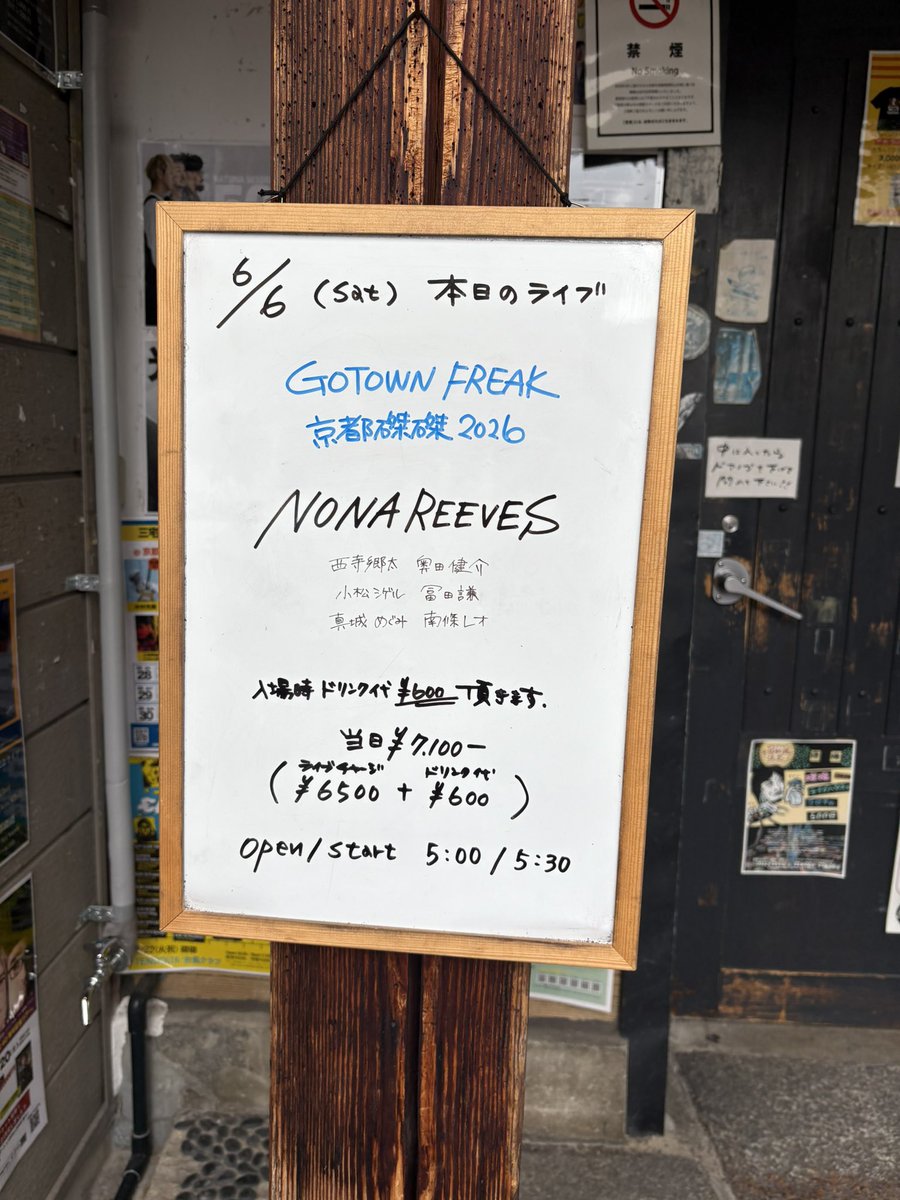 6/6 (Sat) 本日のライブ
GOTOWN FREAK
京都磔磔 2026
NONA REEVES
西寺郷太 奥田健介
小松シゲル 冨田謙
真城めぐみ 南條レオ
入場時ドリンク代¥600頂きます.
当日¥7,100-
ライブチャージ ドリンク代
(¥6500 + ¥600)
open/start 5:00/5:30
禁煙
No Smoking
28
29
30